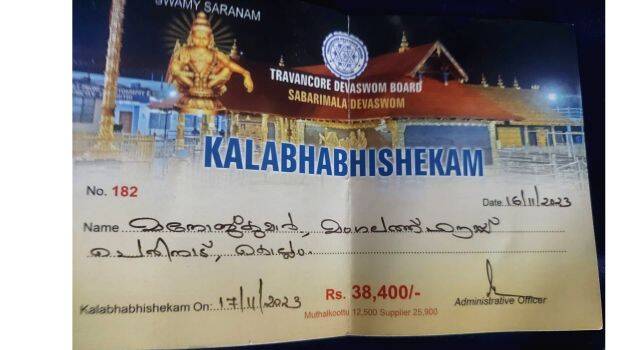 SWAMY SARANAM
TRAVANCORE DEVASWOM BOARD
SABARIMALA DEVASWOM
KALABHABHISHEKAM
No. 182
Date 16/11/2023
Name മനോജ്കുമാർ, മംഗലത്ത് ഹൗസ്
പെരിനാട്, കൊല്ലം.
Kalabhabhishekam On: 17/11/2023
Rs. 38,400/-
Muthalkoottu 12,500 Supplier 25,900
Administrative Officer